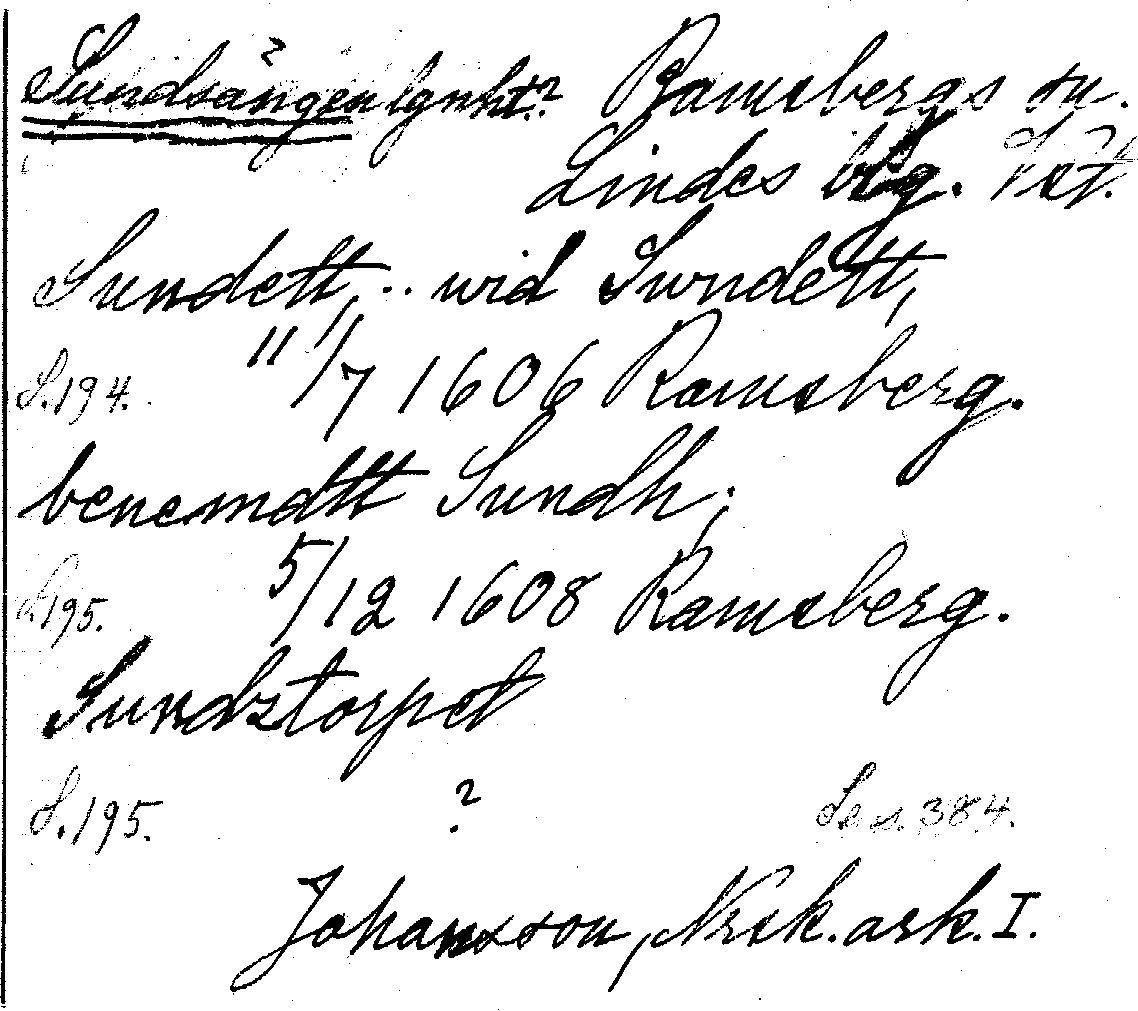 Sundsängen lgnht? Ramsbergs sn.
Lindes blg. Vst.
Sundett, .. wid Sundett,
S.194. 11/7 1606 Ramsberg.
benemdtt Sundh;
S.195. 5/12 1608 Ramsberg.
Sundztorpet
S.195. ? 384.
Johansson, Nrsk. ark. I.